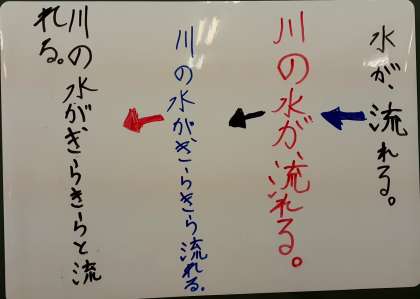 水が、流れる。
川の水が、流れる。
川の水がきらきら流れる。
川の水がきらきらと流
れる。